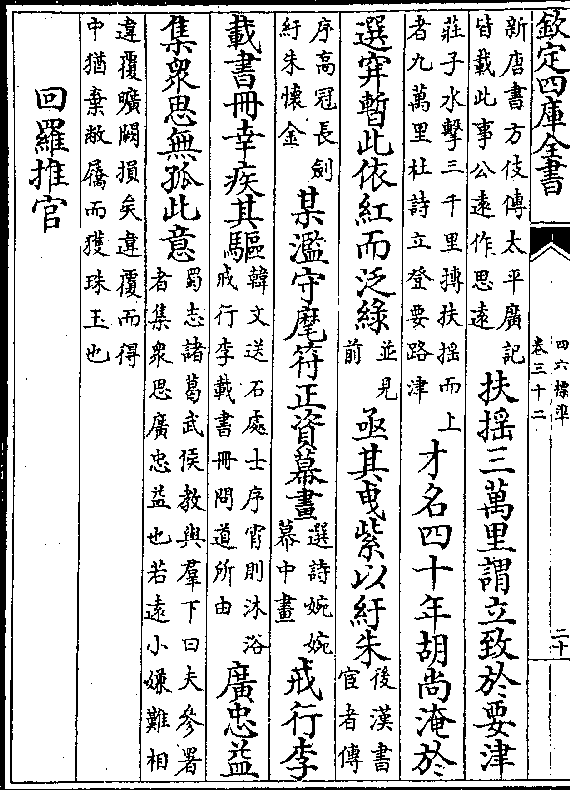 欽定四庫全書
四六標準
卷三十二
二十
新唐書方伎傳太平廣記
皆載此事公遠作思遠
扶揺三萬里謂立致於要津
莊子水擊三千里摶扶揺而上
者九萬里杜詩立登要路津
才名四十年胡尚淹於
選穽暫此依紅而泛綠
並見
前
亟其曵紫以紆朱
後漢書
宦者傳
序高冠長劍
紆朱懷金
某濫守麾符正資幕畫
選詩婉婉
幕中畫
戒行李
載書冊幸疾其驅
韓文送石處士序宵則沐浴
戒行李載書冊問道所由
廣忠益
集衆思無孤此意
蜀志諸葛武侯教與羣下曰夫參署
者集衆思廣忠益也若遠小嫌難相
違覆曠闕損矣違覆而得
中猶棄敝屩而獲珠玉也
回羅推官